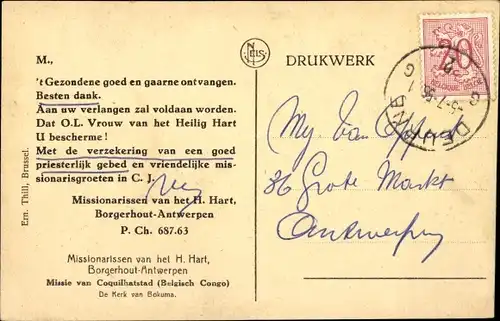 M.,
't Gezondene goed en gaarne ontvangen.
Besten dank.
Aan uw verlangen zal voldaan worden.
Dat O.L. Vrouw van het Heilig Hart
U bescherme !
Met de verzekering van een goed
priesterlijk gebed en vriendelijke mis-
sionarisgroeten in C. J.
Missionarissen van het H. Hart,
Borgerhout-Antwerpen
P. Ch. 687.63
Missionarissen van het H. Hart,
Borgerhout-Antwerpen
Missie van Coquilhatstad (Belgisch Congo)
De Kerk van Bokuma.
Ern. Thill, Brussel.
NELS
DRUKWERK
20
BELGIQUE BELGIE
DEURNE
My. Van
86 Grote Markt
Antwerpen